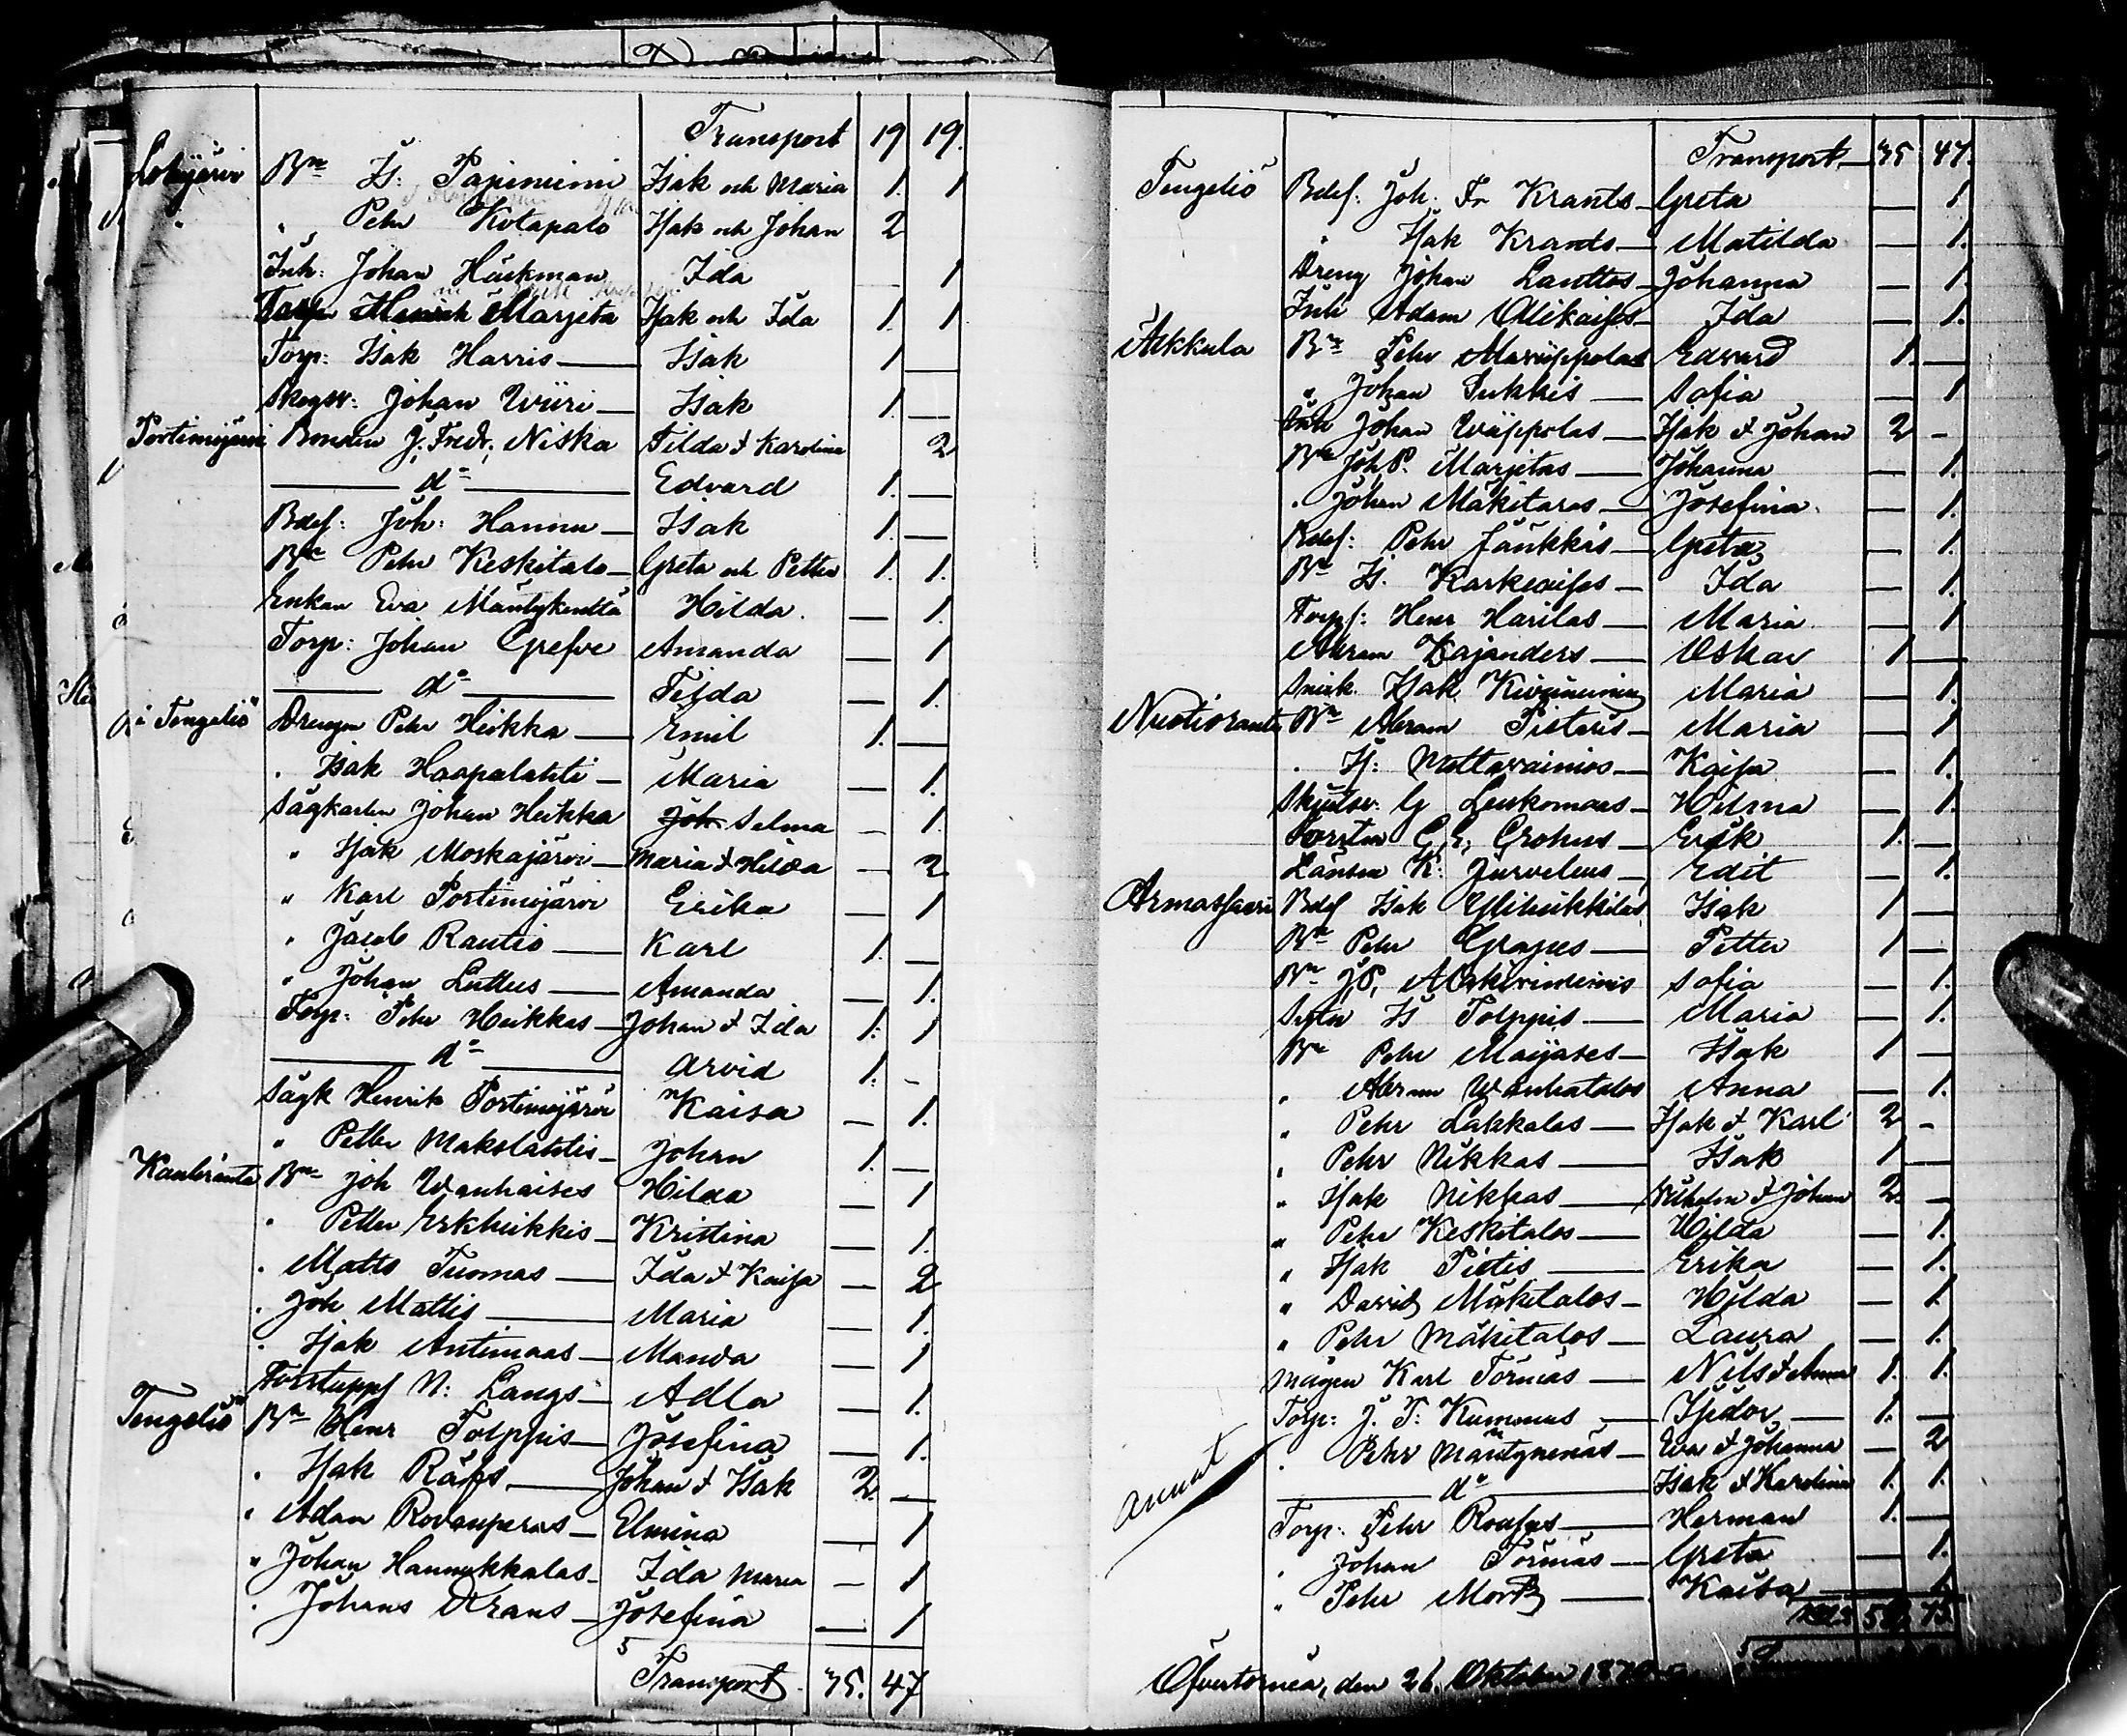 Transport 19 19.
Lohijärvi Bn Is: Papiniemi Isak och Maria 1. 1
" " Pehr Kotapalo Isak och Johan 2
Inh: Johan Heickman Ida 1
Margeta Isak och Ida 1. 1
Torp: Isak Harris Isak 1
Skogsv: Johan Wiiri Isak 1.
Portimojärvi Bonden J. Fredr. Niska Tilda & Karolina 2
do Edvard 1.
Bdes: Joh: Hannu Isak 1.
Bn Pehr Keskitalo Greta och Petter 1. 1.
Enkan Eva Mäntykenttä Hilda 1.
Torp: Johan Grefve Amanda 1
do Tilda 1.
i Tengeliö Drengen Pehr Heikka Emil 1.
. Isak Haapalahti Maria 1.
Sågkarlen Johan Heikka Joh Selma 1.
" Isak Moskajärvi Maria & Hilda 2
" Karl Portimojärvi Erika 1
" Jacob Rautio Karl 1.
" Johan Luttus Amanda 1.
Torp: Pehr Heikkas Johan & Ida 1. 1
do Arvid 1.
Sågk Henrik Portimojärvi Kaisa 1.
" Petter Makolahtis Johan 1.
Kauliranta Bn Joh Wanhaises Hilda 1
" Petter Erkheikkis Kristina 1.
. Matts Tuomas Ida & Kaisa 2
. Joh Mattis Maria 1.
. Isak Antimaas Manda 1
N: Langs Adla 1.
Tengeliö Bn Henr Tolppis Josefina 1.
. Isak Räihs Johan & Isak 2.
. Adam Rovanperas Elmina 1
" Johan Hannukkalas Ida Maria 1
. Johans Krans Josefina 1
Transport 35. 47
Transport 35 47.
Tengeliö Bdes: Joh. Fr Krants Greta 1
" Isak Krants Matilda 1.
Dreng Johan Lanttos Johanna 1
Inh Adam Alikaises Ida 1.
Alkkula Bn Pehr Edvard 1.
" Johan Sukkis Sofia 1
Inh Johan Isak & Johan 2 -
Bn Joh P. Margetas Johanna 1.
. Johan Mäkitaros Josefina 1.
Bdes: Pehr Jäukkäs Greta 1.
Bn Is. Karkeaises Ida 1
Torps: Henr Harilas Maria 1
Abram Kajanders Oskar 1
Isak Kiviniemis Maria 1.
Nuotioranta Bn Abram Pietaris Maria 1
. Is: Mattavainios Kaisa 1.
G Leukomaas Hilma 1.
C. G. Grohns Erik 1.
K: Jurvelius Edit 1.
Armassaari Bdes Isak Yliheikkilas Isak 1
Bn Pehr Grapes Petter 1
Bn J. P. Sofia 1.
Is Tolppis Maria 1.
Bn Pehr Maijases Isak 1
. Abram Wanhatalos Anna 1.
" Pehr Lakkalas Isak & Karl 2 -
. Pehr Nikkas Isak 1
" Isak Nikkas Vilhelm & Johan 2
" Pehr Keskitalos Hilda 1.
" Isak Pietis Erika 1.
" David Mäkitalos Hilda 1
" Pehr Mäkitalos Laura 1.
Mågen Karl Törmäs Nils & Anna 1. 1.
Torp: J. P. Kummus Isidor 1.
annat . Pehr Mäntynenäs Eva & Johanna 2
do Isak & Karolina 1. 1.
Torp: Pehr Herman 1.
. Johan Törmäs Greta 1.
" Pehr Kaisa 1
Öfvertorneå, den 26. Oktober